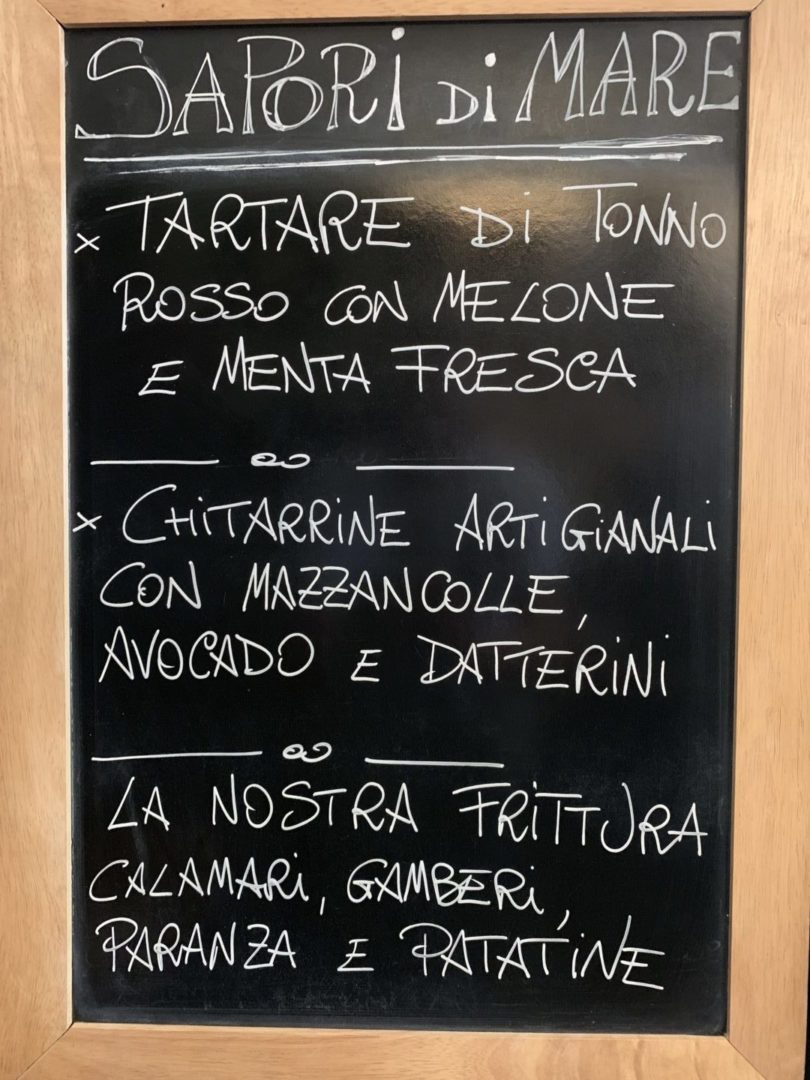 SAPORi Di MARE
x TARTARE Di TONNO
ROSSO CON MELONE
E MENTA FRESCA
x CHiTARRiNE ARTiGiANALi
CON MAZZANCOLLE,
AVOCADO E DATTERiNi
LA NOSTRA FRiTTURA
CALAMARi, GAMBERi,
PARANZA E PATATiNE